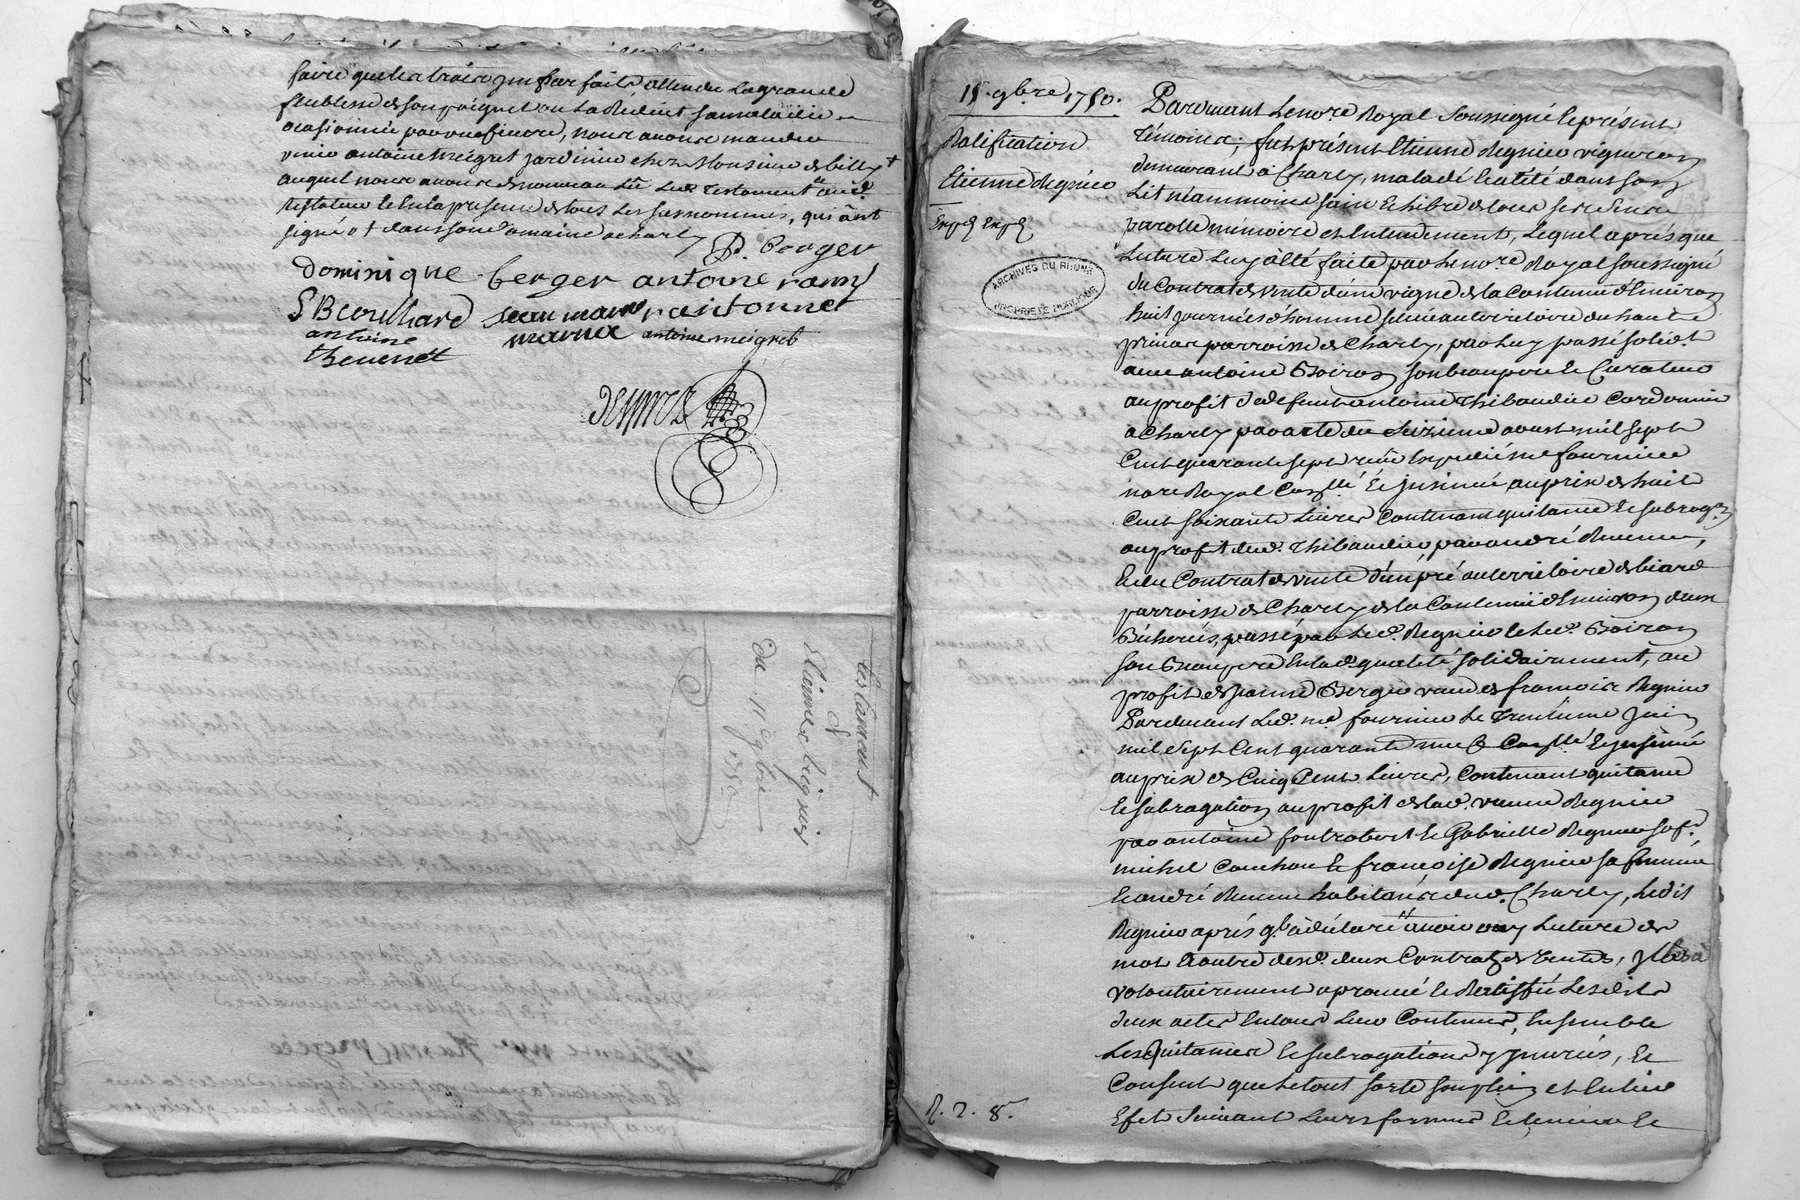 faire que les traits imparfaits attendu la grande
feublesse de son poignet ou la reduit sa maladie
ocasionnée par une fievre, nous avons mandé
antoine meigret jardinier chez Monsieur de billy +
auquel nous avons de nouveau lû led. testament
testateur et en la presence de tous les susnommés, qui ont
signé
P. berger
dominique berger antoine ramy
S Brouilhard jean marc raitonnet
antoine
thevenet
antoine meigret
testament
d'
Etienne Reignier
du 11 9bre
1750
11 9bre 1750.
Ratification
Etienne Regnier
Exp.é Exp.é
ARCHIVES DU RHONE
PROPRIÉTÉ PUBLIQUE
Pardevant le no.re Royal soussigné et présents
témoins, fut présent Etienne Regnier vigneron
demeurant à Charly, malade et alité dans son
lit néammoins sain et libre de tous ses sens
parolle mémoire et entendement, lequel après que
lecture luy a été faite par le no.re Royal soussigné
du Contrat de vente d'une vigne de la Contenue d'environ
huit journées d'homme située au territoire du haut
parroisse de Charly, par luy passé solid.t
avec antoine Boiron son beaupere et Curateur
au profit de defunt antoine Thibaudier Cordonnier
a Charly par acte du seizieme aoust mil sept
Cent quarante sept reçu et expedié me fournier
no.re Royal Con.llé et insinué au prix de huit
Cent soixante livres Contenant quitance et subrog.on
au profit dud. Thibaudier par andré
et du Contrat de vente d'un pré au territoire de biard
parroisse de Charly de la Contenue d'environ deux
Bicherés, passé par led. Regnier et led. Boiron
son Beaupere en lad. qualité solidairement, au
profit de jeanne Berger veuve de francois Regnier
Pardevant led. me fournier le trentieme juin
mil sept Cent quarante neuf Con.llé et insinué
au prix de Cinq Cent livres, contenant quitance
et subrogation au profit de lad. veuve Regnier
par antoine fontrobert et Gabrielle Regnier sa f.e
michel Couchou et francoise Regnier sa femme
et andré habitants dud. Charly, ledit
Regnier après q.l a déclaré avoir ouy lecture de
mot à autre desd. deux Contrats de ventes, il les a
volontairement aprouvé et Ratiffié lesdits
deux actes en tout leur Contenu, ensemble
les quitances et subrogations y inserées, et
Consent que le tout sorte son plein et entier
Effet suivant leurs formes et teneurs et
R. 2. 8.s